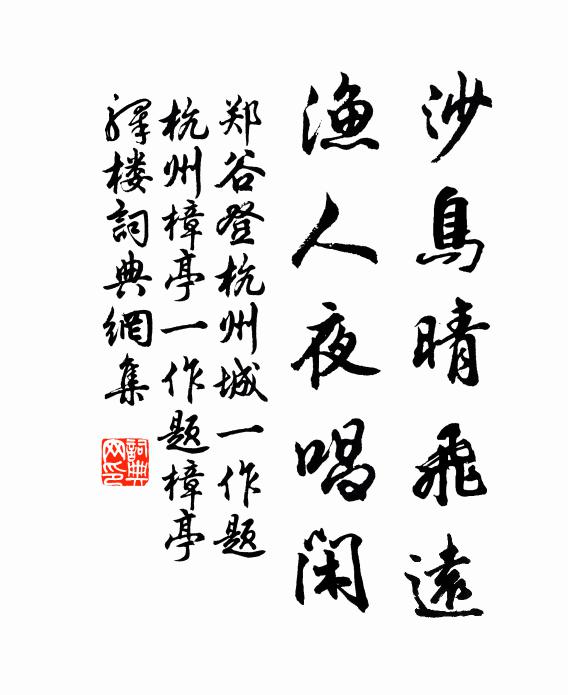 沙鳥晴飛遠
漁人夜唱閑
郑谷登杭州城一作题
杭州樟亭一作题樟亭
驛楼詞典網集
詞典
网印